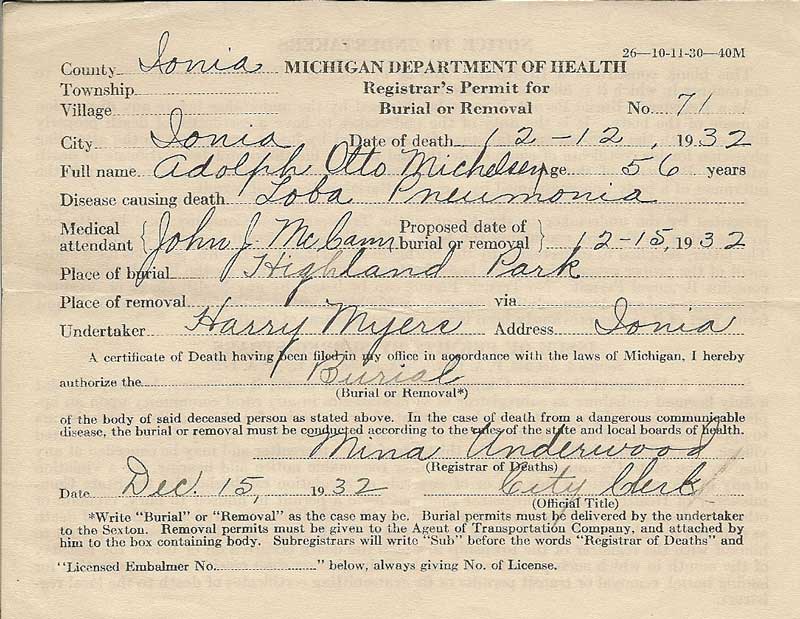 26—10-11-30—40M
County Ionia MICHIGAN DEPARTMENT OF HEALTH
Township Registrar's Permit for
Village Burial or Removal No. 71
City Ionia Date of death 12-12, 1932
Full name Adolph Otto Michelsen Age 56 years
Disease causing death Loba Pneumonia
Medical attendant { John J. McCann Proposed date of burial or removal } 12-15, 1932
Place of burial Highland Park
Place of removal via
Undertaker Harry Myers Address Ionia
A certificate of Death having been filed in my office in accordance with the laws of Michigan, I hereby
authorize the Burial
(Burial or Removal*)
of the body of said deceased person as stated above. In the case of death from a dangerous communicable
disease, the burial or removal must be conducted according to the rules of the state and local boards of health.
Mina Underwood
(Registrar of Deaths)
Date Dec. 15, 1932 City Clerk
(Official Title)
*Write "Burial" or "Removal" as the case may be. Burial permits must be delivered by the undertaker
to the Sexton. Removal permits must be given to the Agent of Transportation Company, and attached by
him to the box containing body. Subregistrars will write "Sub" before the words "Registrar of Deaths" and
"Licensed Embalmer No. " below, always giving No. of License.